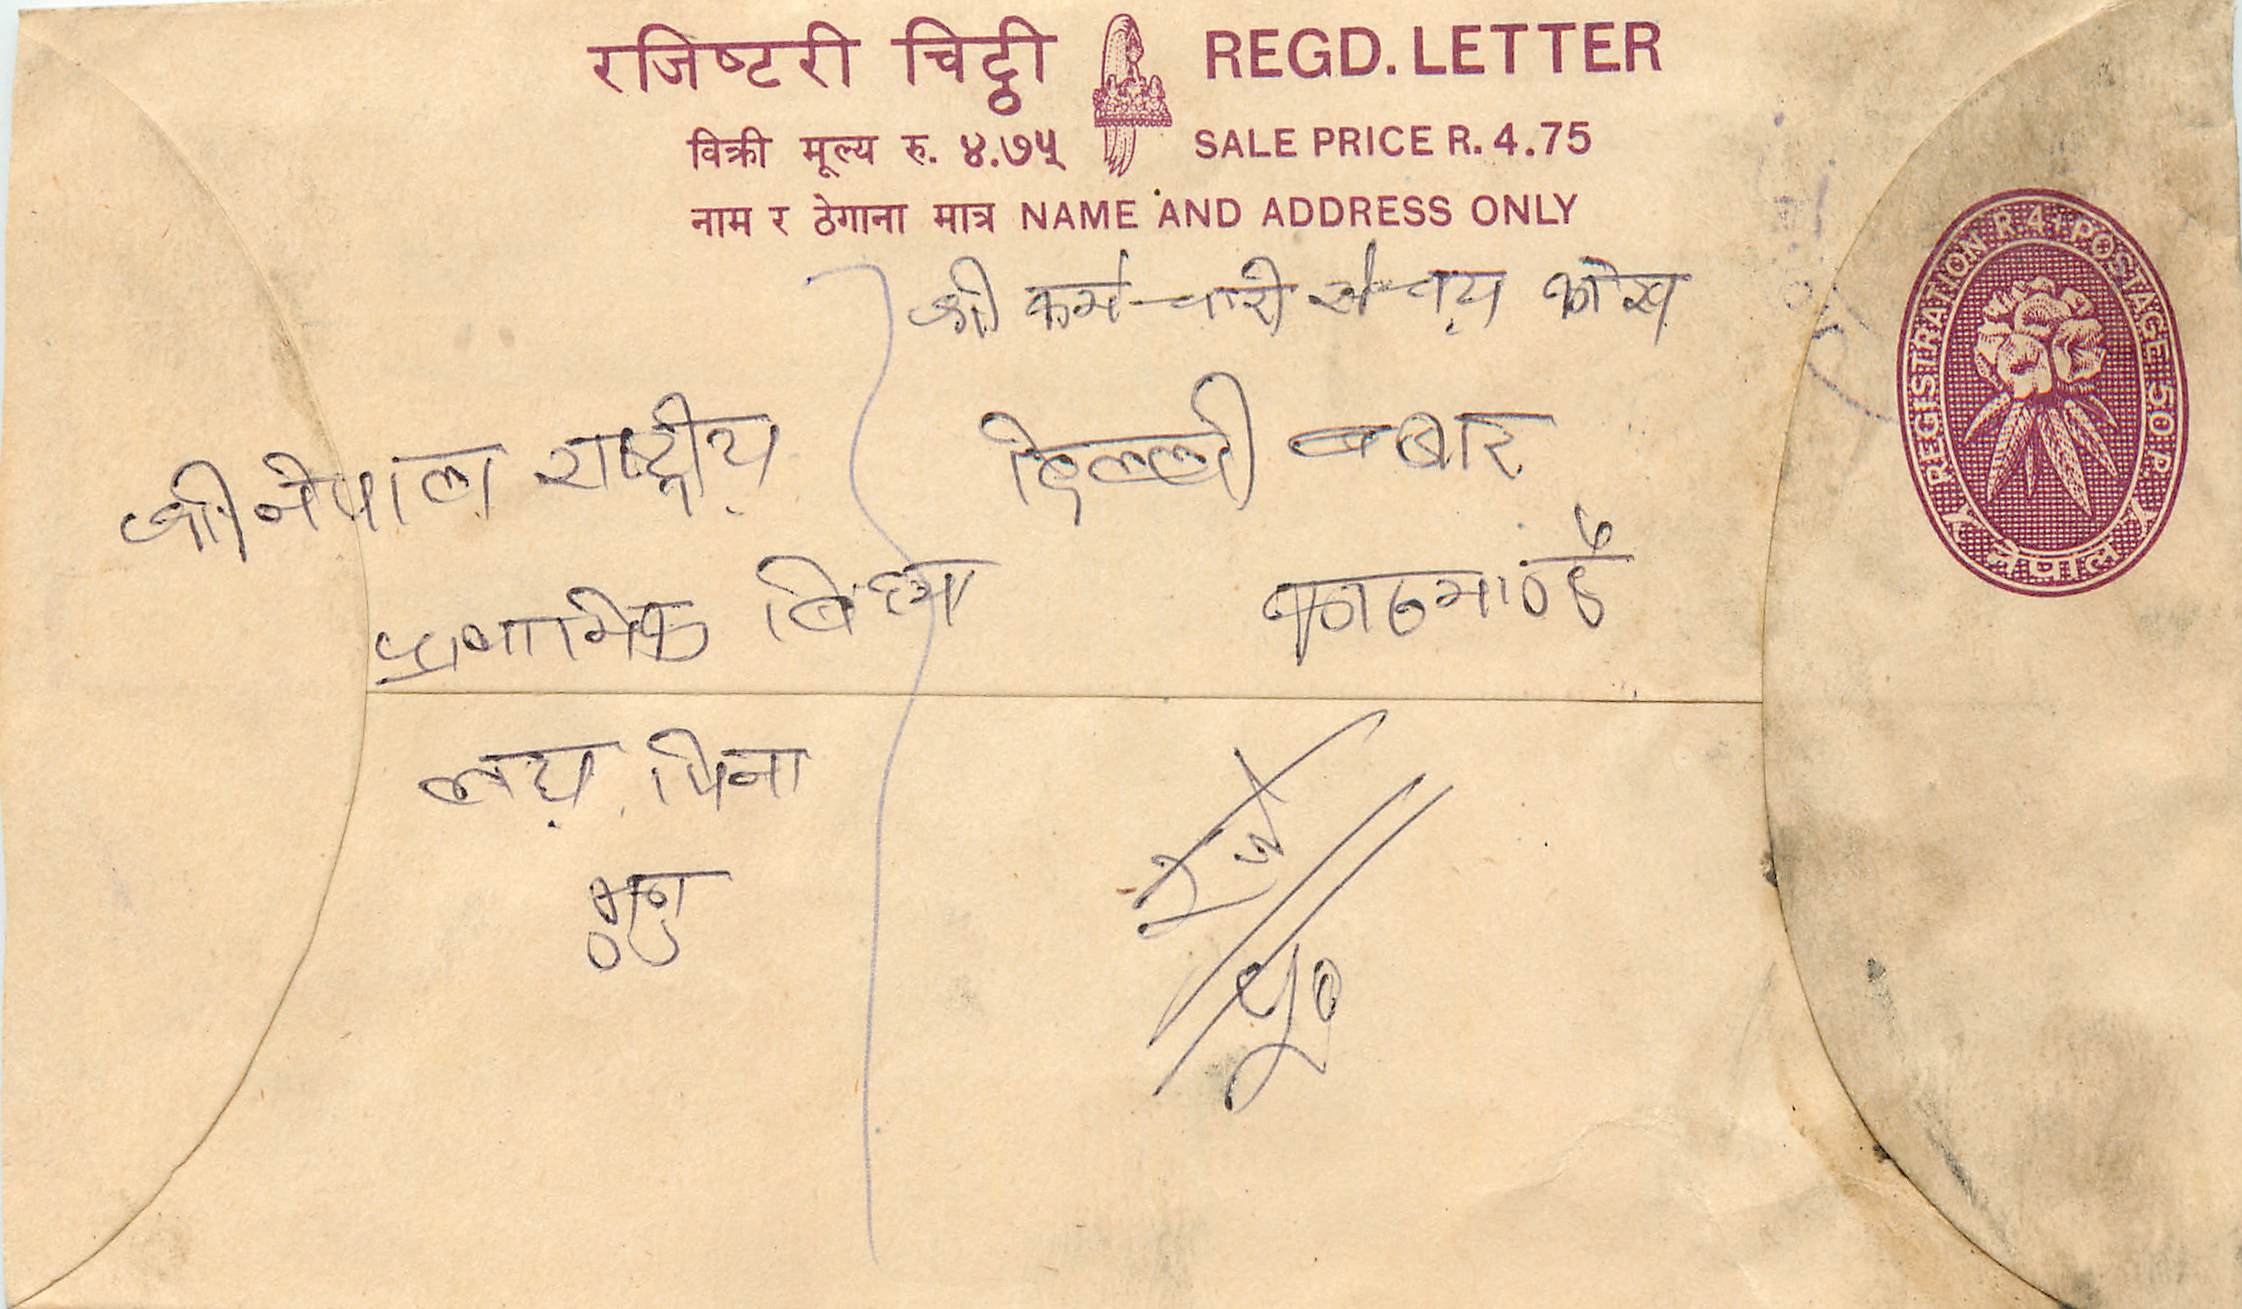 रजिष्टरी चिट्ठी REGD. LETTER
विक्री मूल्य रु. ४.७५ SALE PRICE R. 4.75
नाम र ठेगाना मात्र NAME AND ADDRESS ONLY
REGISTRATION R. 4 + POSTAGE 50 P.
नेपाल
श्री कर्मचारी संचय कोष
दिल्ली बजार
काठमाण्डौ
श्री नेपाल राष्ट्रीय
प्राथमिक बिध्या
लय पिना
मुगु